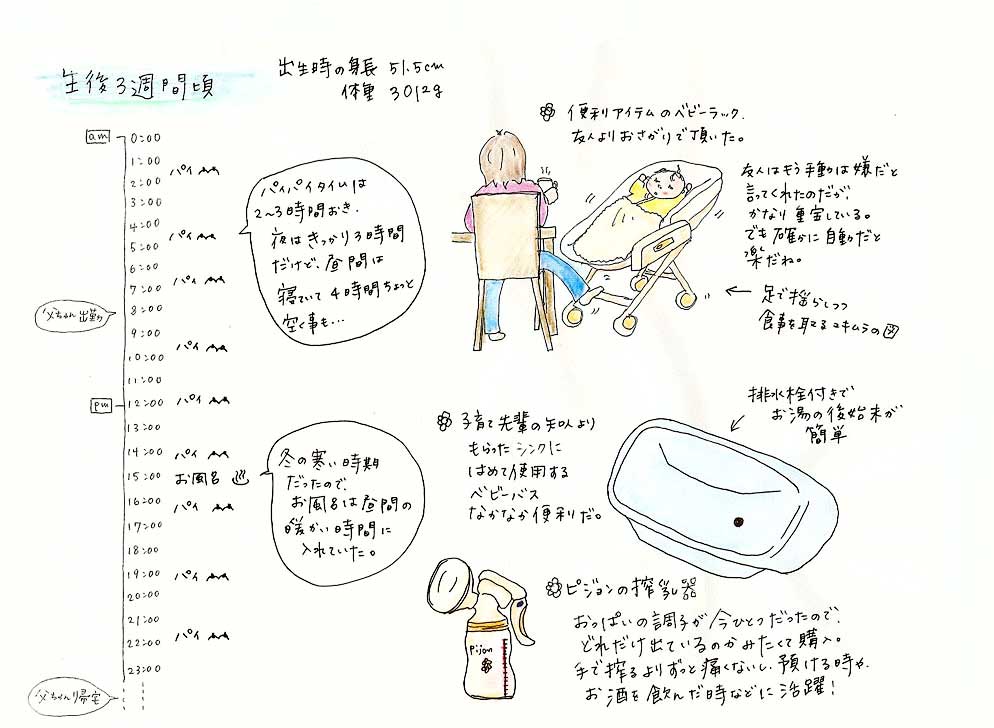 生後3週間頃
出生時の身長 51.5cm
体重 3012g
am
0:00
1:00
パイ
2:00
3:00
4:00
5:00
パイ
6:00
7:00
パイ
父ちゃん出勤
8:00
9:00
10:00
パイ
11:00
pm
12:00
パイ
13:00
14:00
パイ
15:00
お風呂
16:00
パイ
17:00
18:00
19:00
パイ
20:00
21:00
22:00
パイ
23:00
父ちゃん帰宅
パイパイタイムは
2~3時間おき.
夜はきっかり3時間
だけど、昼間は
寝ていて4時間ちょっと
空く事も…
冬の寒い時期
だったので、
お風呂は昼間の
暖かい時間に
入れていた。
便利アイテムのベビーラック.
友人よりおさがりで頂いた。
友人はもう手動は嫌だと
言ってくれたのだが、
かなり重宝している。
でも確かに自動だと
楽だね。
← 足で揺らしつつ
食事を取るユキムラの図
子育て先輩の知人より
もらったシンクに
はめて使用する
ベビーバス
なかなか便利だ。
排水栓付きで
お湯の後始末が
簡単
Pijon
ピジョンの搾乳器
おっぱいの調子が今ひとつだったので、
どれだけ出ているのかみたくて購入。
手で搾るよりずっと痛くないし、預ける時や、
お酒を飲んだ時などに活躍!